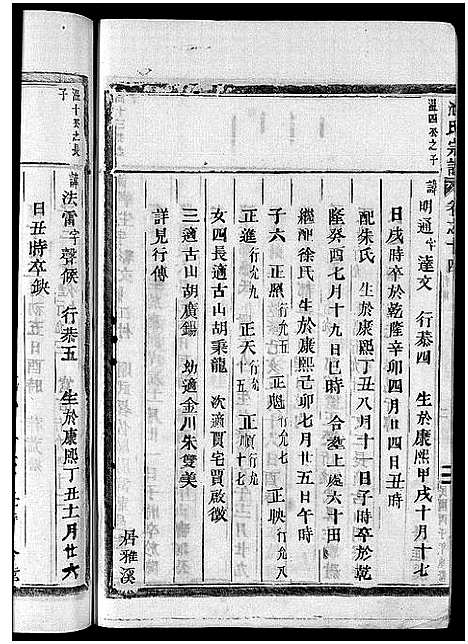 溫四公之子
諱明通字達文 行恭四 生於康熙甲戌十月十七
日戌時卒於乾隆辛卯四月廿四日丑時
配朱氏 生於康熙丁丑八月十一日子時卒於乾
隆癸酉七月十九日巳時 合塟上處六十田
繼娶徐氏 生於康熙己卯七月廿五日午時
子六 正照行允 正魁行允七 正映行允八
正進行允九 正天行允十五 正魁行允十七
女四長適古山胡秉龍 次適賈宅賈啟徵
三適古山胡廣錫 幼適金川朱雙美
詳見行傳
居雅溪
溫十公之長
子
諱法雷字聲候 行恭五 生於康熙丁丑十一月廿六
日丑時卒缺